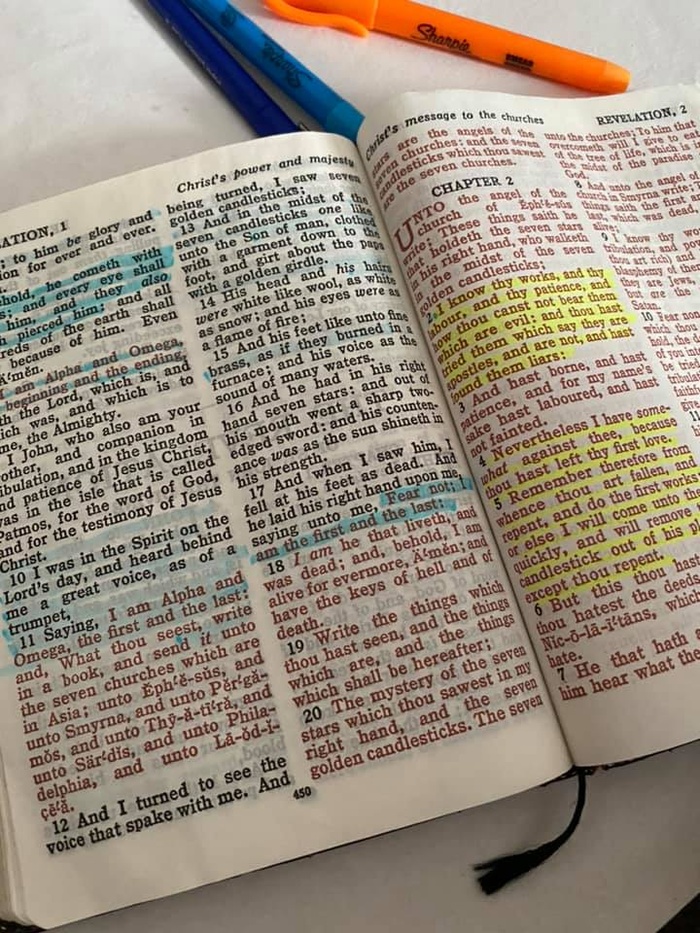 Sharpie
SMEAR
Sharpie
ATION, 1
; to him be glory and
ion for ever and ever.
hold, he cometh with
s; and every eye shall
him, and they also
h pierced him: and all
reds of the earth shall
because of him. Even
Ā'mĕn.
I am Alpha and Omega,
beginning and the ending,
th the Lord, which is, and
ich was, and which is to
me, the Almighty.
I John, who also am your
other, and companion in
ibulation, and in the kingdom
nd patience of Jesus Christ,
was in the isle that is called
Patmos, for the word of God,
and for the testimony of Jesus
Christ.
10 I was in the Spirit on the
Lord's day, and heard behind
me a great voice, as of a
trumpet,
11 Saying, I am Alpha and
Omega, the first and the last:
and, What thou seest, write
in a book, and send it unto
the seven churches which are
in Asia; unto Ĕph'ĕ-sŭs, and
unto Smyrna, and unto Pĕr'gă-
mŏs, and unto Thȳ-ă-tī'ră, and
unto Sär'dĭs, and unto Phila-
delphia, and unto Lā-ŏd-ĭ-
çē'ă.
12 And I turned to see the
voice that spake with me. And
Christ's power and majesty
being turned, I saw seven
golden candlesticks;
13 And in the midst of the
seven candlesticks one like
unto the Son of man, clothed
with a garment down to the
foot, and girt about the paps
with a golden girdle.
14 His head and his hairs
were white like wool, as white
as snow; and his eyes were as
a flame of fire;
15 And his feet like unto fine
brass, as if they burned in a
furnace; and his voice as the
sound of many waters.
16 And he had in his right
hand seven stars: and out of
his mouth went a sharp two-
edged sword: and his counten-
ance was as the sun shineth in
his strength.
17 And when I saw him, I
fell at his feet as dead. And
he laid his right hand upon me,
saying unto me, Fear not; I
am the first and the last:
18 I am he that liveth, and
was dead; and, behold, I am
alive for evermore, Ā'mĕn; and
have the keys of hell and of
death.
19 Write the things which
thou hast seen, and the things
which are, and the things
which shall be hereafter;
20 The mystery of the seven
stars which thou sawest in my
right hand, and the seven
golden candlesticks. The seven
450
Christ's message to the churches
REVELATION, 2
stars are the angels of the
seven churches: and the seven
candlesticks which thou sawest
are the seven churches.
CHAPTER 2
UNTO the angel of the
church of Ĕph'ĕ-sŭs
write; These things saith he
that holdeth the seven stars
in his right hand, who walketh
in the midst of the seven
golden candlesticks;
2 I know thy works, and thy
labour, and thy patience, and
how thou canst not bear them
which are evil: and thou hast
tried them which say they are
apostles, and are not, and hast
found them liars:
3 And hast borne, and hast
patience, and for my name's
sake hast laboured, and hast
not fainted.
4 Nevertheless I have some-
what against thee, because
thou hast left thy first love.
5 Remember therefore from
whence thou art fallen, and
repent, and do the first works;
or else I will come unto
quickly, and will remove
candlestick out of his
except thou repent.
6 But this thou hast
thou hatest the deeds
Nĭc-ō-lā-ī'tăns, which
hate.
7 He that hath
him hear what the
unto the churches; To him that
overcometh will I give to eat
of the tree of life, which is
the midst of the paradise
God.
8 And unto the angel of
church in Smyrna write;
things saith the first
last, which was dead,
9 I know thy works,
tribulation, and
thou art rich) and
blasphemy of the
they are Jews,
but are the
Satan.
10 Fear non
which thou